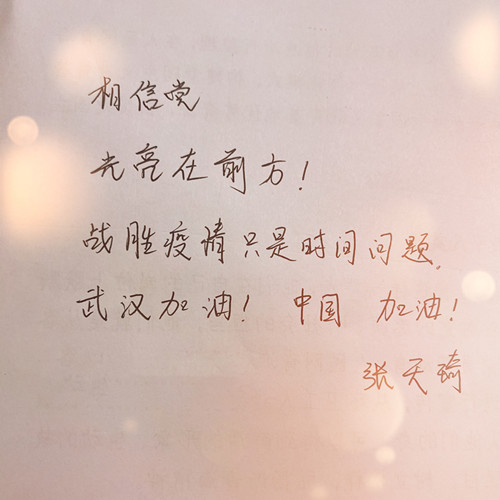 相信党
光亮在前方！
战胜疫情只是时间问题.
武汉加油！ 中国 加油！
张天琦